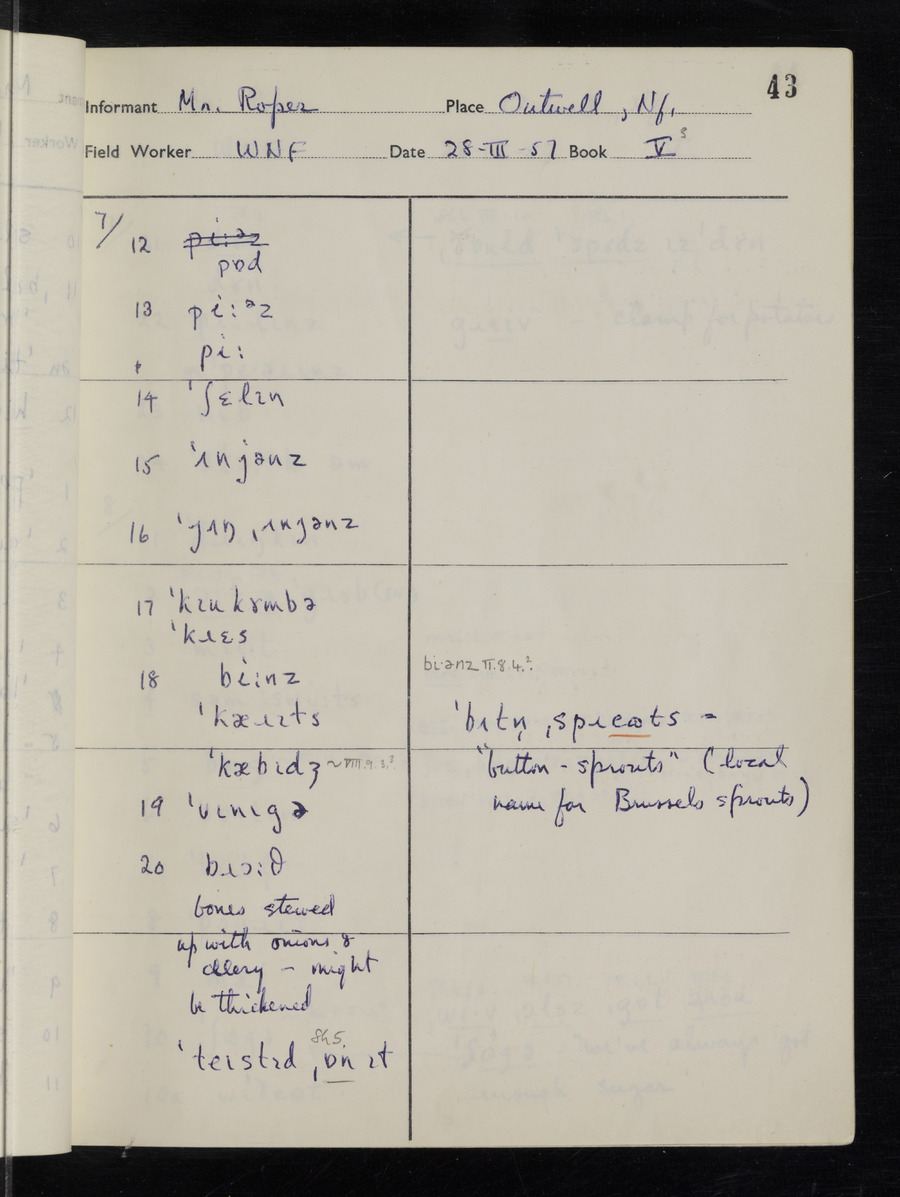 43
Informant Mr. Roper Place Outwell, Nf.
Field Worker WNF Date 28-III-57 Book V³
7/
12 pi:ᵊz
pɒd
13 pi:ᵊz
pi:
14 ˈʃɛlɪn
15 ˈɪnjənz
16 ˈjɪŋ ˌɪnjənz
17 ˈkɪukɤmbə
ˈkɹɛs
18 bi:nz
bi·ənz II.8.4.²
ˈkæɹɪts
ˈbɪtn̩ ˌspɹɛɷts =
ˈkæbɪdʒ ~VIII.9.3.²
"button-sprouts" (local
name for Brussels sprouts)
19 ˈvɪnɪgə
20 bɹɔ:θ
bones stewed
up with onions &
celery – might
be thickened
8h5.
ˈteɪstɪd ˌɒn ɪt